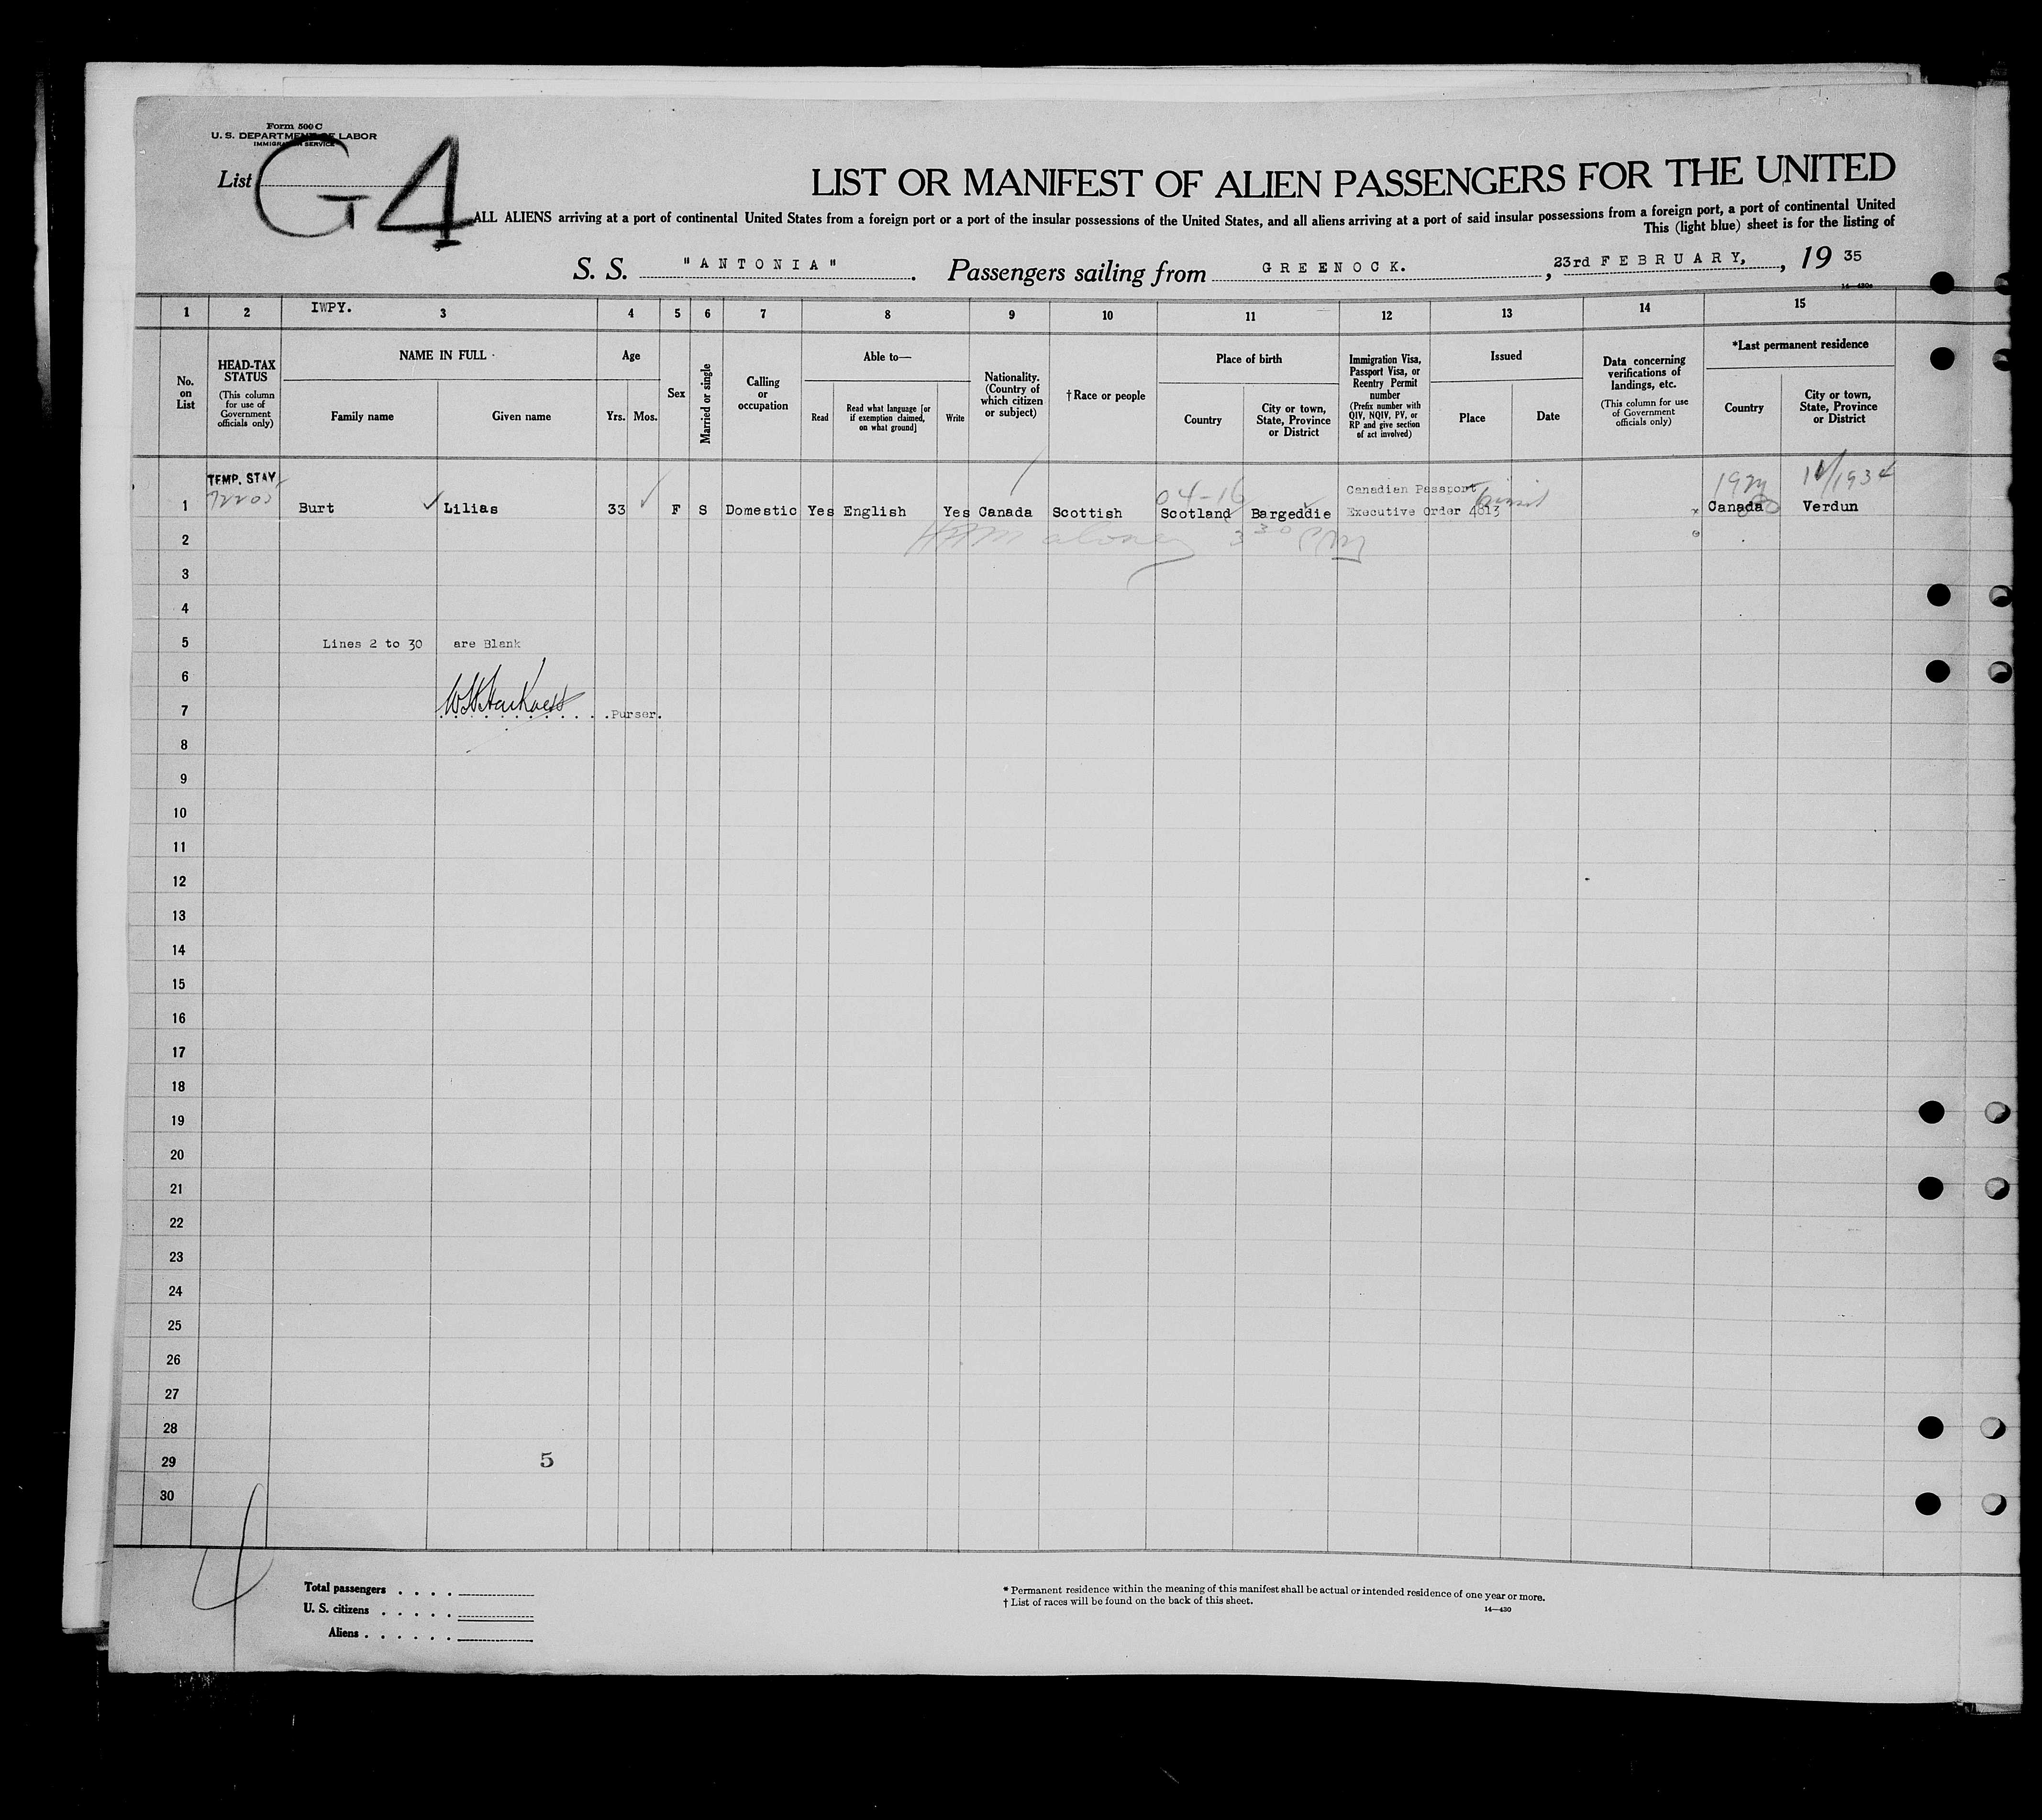 Form 500 C
U. S. DEPARTMENT OF LABOR
IMMIGRATION SERVICE
List
G4
LIST OR MANIFEST OF ALIEN PASSENGERS FOR THE UNITED
ALL ALIENS arriving at a port of continental United States from a foreign port or a port of the insular possessions of the United States, and all aliens arriving at a port of said insular possessions from a foreign port, a port of continental United
This (light blue) sheet is for the listing of
S. S. "ANTONIA". Passengers sailing from GREENOCK. , 23rd FEBRUARY, , 19 35
14—430a
1 2 IWPY. 3 4 5 6 7 8 9 10 11 12 13 14 15
No. on List
HEAD-TAX STATUS
(This column for use of Government officials only)
NAME IN FULL
Family name
Given name
Age
Yrs.
Mos.
Sex
Married or single
Calling or occupation
Able to—
Read
Read what language [or if exemption claimed, on what ground]
Write
Nationality. (Country of which citizen or subject)
† Race or people
Place of birth
Country
City or town, State, Province or District
Immigration Visa, Passport Visa, or Reentry Permit number
(Prefix number with QIV, NQIV, PV, or RP and give section of act involved)
Issued
Place
Date
Data concerning verifications of landings, etc.
(This column for use of Government officials only)
*Last permanent residence
Country
City or town, State, Province or District
TEMP. STAY
04-16
Canadian Passport
11/1934
1 Burt Lilias 33 F S Domestic Yes English Yes Canada Scottish Scotland Bargeddie Executive Order 4813 Canada Verdun
2
3 30 PM
3
4
5 Lines 2 to 30 are Blank
6
7 Purser.
8
9
10
11
12
13
14
15
16
17
18
19
20
21
22
23
24
25
26
27
28
29 5
30
4
Total passengers . . . .
U. S. citizens . . . . .
Aliens . . . . . .
* Permanent residence within the meaning of this manifest shall be actual or intended residence of one year or more.
† List of races will be found on the back of this sheet.
14—430